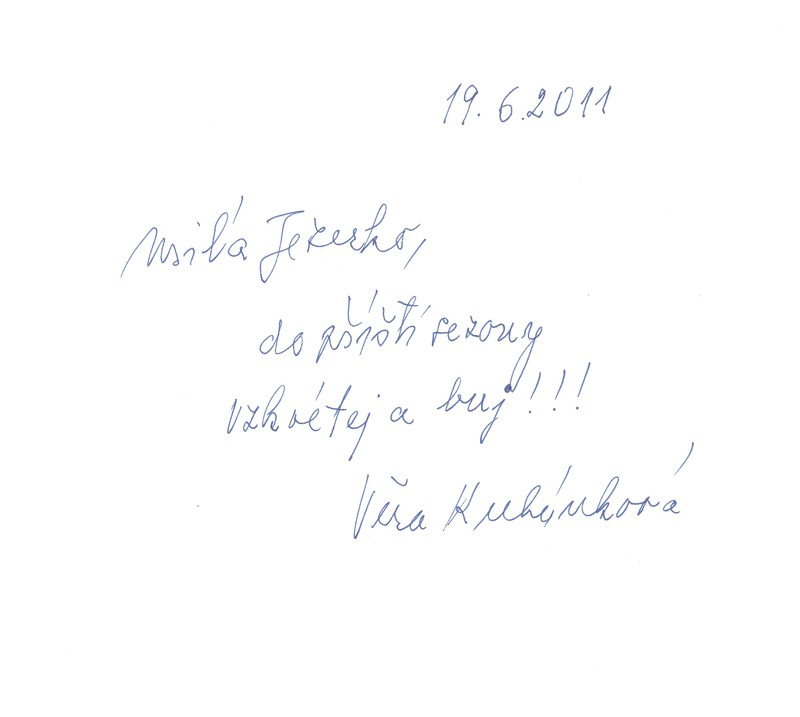 19.6.2011
Milá Ježerko,
do příští sezony
vzkvétej a buj!!!
Věra Kubánková